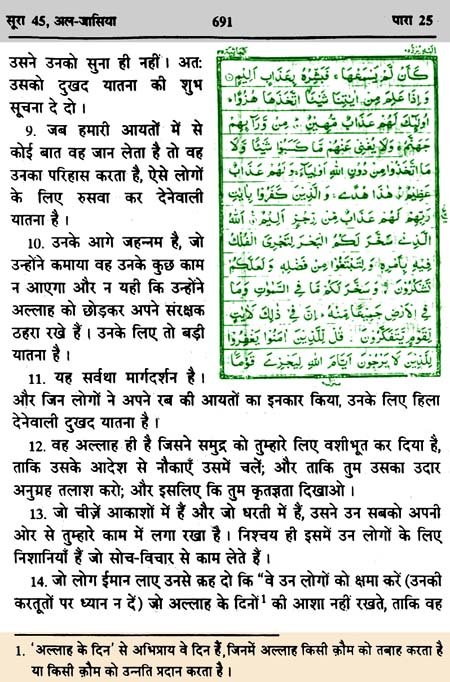 सूरा 45, अल-जासिया
691
पारा 25
उसने उनको सुना ही नहीं। अतः
उसको दुखद यातना की शुभ
सूचना दे दो।
9. जब हमारी आयतों में से
कोई बात वह जान लेता है तो वह
उनका परिहास करता है, ऐसे लोगों
के लिए रुसवा कर देनेवाली
यातना है।
10. उनके आगे जहन्नम है, जो
उन्होंने कमाया वह उनके कुछ काम
न आएगा और न यही कि उन्होंने
अल्लाह को छोड़कर अपने संरक्षक
ठहरा रखे हैं। उनके लिए तो बड़ी
यातना है।
11. यह सर्वथा मार्गदर्शन है।
كَأَنْ لَّمْ يَسْمَعْهَا فَبَشِّرْهُ بِعَذَابٍ اَلِيْمٍ
وَاِذَا عَلِمَ مِنْ اٰيٰتِنَا شَيْئًا اتَّخَذَهَا هُزُوًا
اُولٰٓئِكَ لَهُمْ عَذَابٌ مُّهِيْنٌ مِنْ وَّرَآئِهِمْ
جَهَنَّمُ وَلَا يُغْنِيْ عَنْهُمْ مَّا كَسَبُوْا شَيْئًا وَّلَا
مَا اتَّخَذُوْا مِنْ دُوْنِ اللّٰهِ اَوْلِيَآءَ وَلَهُمْ عَذَابٌ
عَظِيْمٌ هٰذَا هُدًى وَالَّذِيْنَ كَفَرُوْا بِاٰيٰتِ
رَبِّهِمْ لَهُمْ عَذَابٌ مِّنْ رِّجْزٍ اَلِيْمٌ اَللّٰهُ
الَّذِيْ سَخَّرَ لَكُمُ الْبَحْرَ لِتَجْرِيَ الْفُلْكُ
فِيْهِ بِاَمْرِهٖ وَلِتَبْتَغُوْا مِنْ فَضْلِهٖ وَلَعَلَّكُمْ
تَشْكُرُوْنَ وَسَخَّرَ لَكُمْ مَّا فِي السَّمٰوٰتِ وَمَا
فِي الْاَرْضِ جَمِيْعًا مِّنْهُ اِنَّ فِيْ ذٰلِكَ لَاٰيٰتٍ
لِّقَوْمٍ يَّتَفَكَّرُوْنَ قُلْ لِّلَّذِيْنَ اٰمَنُوْا يَغْفِرُوْا
لِلَّذِيْنَ لَا يَرْجُوْنَ اَيَّامَ اللّٰهِ لِيَجْزِيَ قَوْمًا
और जिन लोगों ने अपने रब की आयतों का इनकार किया, उनके लिए हिला
देनेवाली दुखद यातना है।
12. वह अल्लाह ही है जिसने समुद्र को तुम्हारे लिए वशीभूत कर दिया है,
ताकि उसके आदेश से नौकाएँ उसमें चलें; और ताकि तुम उसका उदार
अनुग्रह तलाश करो; और इसलिए कि तुम कृतज्ञता दिखाओ।
13. जो चीज़ें आकाशों में हैं और जो धरती में हैं, उसने उन सबको अपनी
ओर से तुम्हारे काम में लगा रखा है। निश्चय ही इसमें उन लोगों के लिए
निशानियाँ हैं जो सोच-विचार से काम लेते हैं।
14. जो लोग ईमान लाए उनसे कह दो कि "वे उन लोगों को क्षमा करें (उनकी
करतूतों पर ध्यान न दें) जो अल्लाह के दिनों¹ की आशा नहीं रखते, ताकि वह
1. 'अल्लाह के दिन' से अभिप्राय वे दिन हैं, जिनमें अल्लाह किसी क़ौम को तबाह करता है
या किसी क़ौम को उन्नति प्रदान करता है।